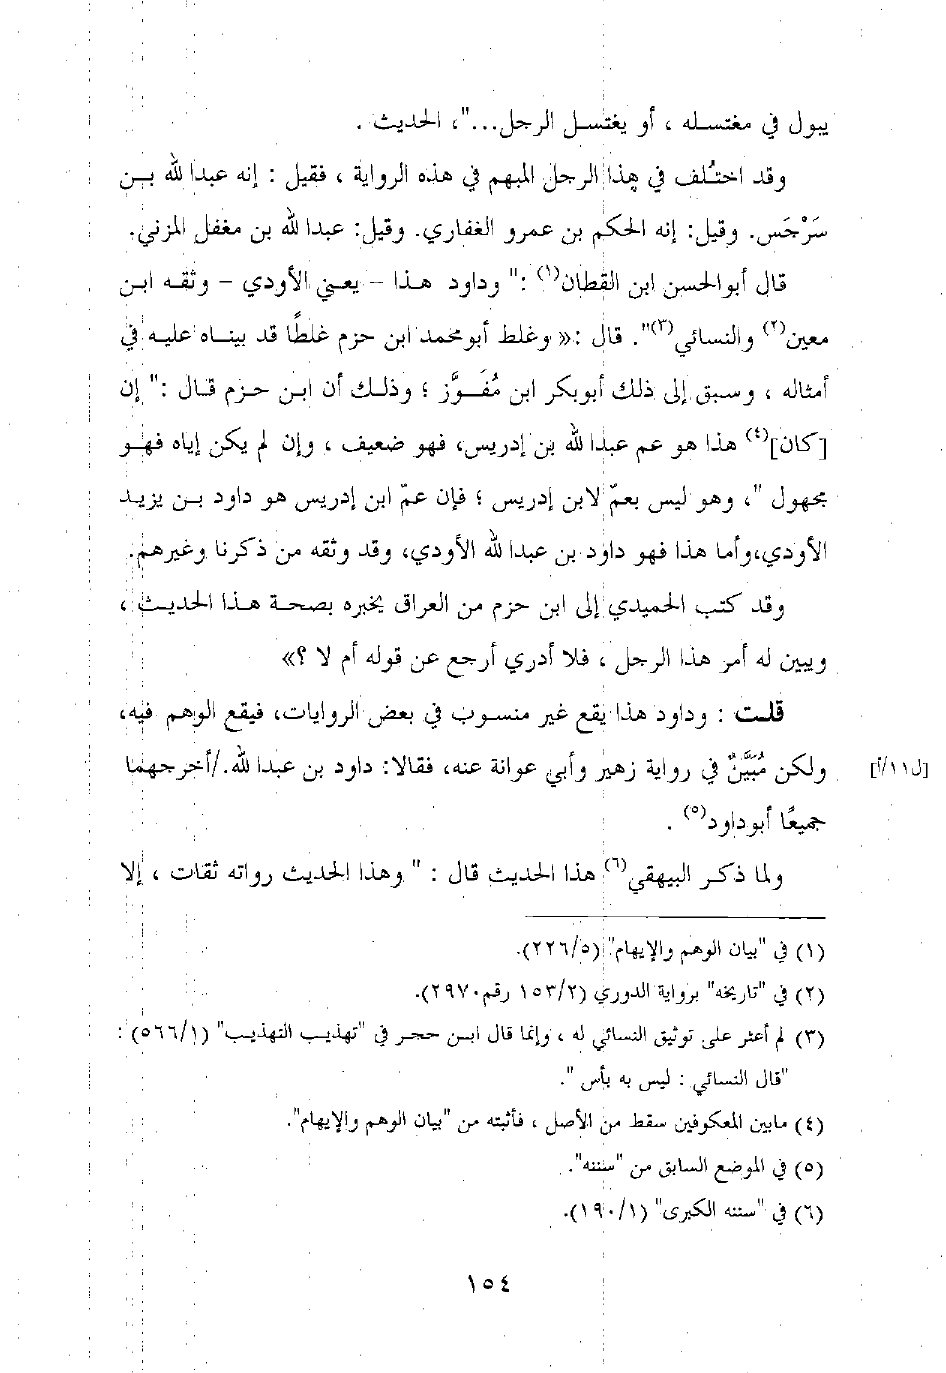 يبول في مغتسله ، أو يغتسل الرجل..."، الحديث .
وقد اختُلف في هذا الرجل المبهم في هذه الرواية ، فقيل : إنه عبدا لله بن
سَرْجَس. وقيل: إنه الحكم بن عمرو الغفاري. وقيل: عبدا لله بن مغفل المزني.
قال أبوالحسن ابن القطان(١) :" وداود هذا - يعني الأودي - وثقه ابن
معين(٢) والنسائي(٣)". قال :« وغلط أبومحمد ابن حزم غلطًا قد بيناه عليه في
أمثاله ، وسبق إلى ذلك أبوبكر ابن مُفَوَّز ؛ وذلك أن ابن حزم قال :" إن
[كان](٤) هذا هو عم عبدا لله بن إدريس، فهو ضعيف ، وإن لم يكن إياه فهو
مجهول "، وهو ليس بعمّ لابن إدريس ؛ فإن عمّ ابن إدريس هو داود بن يزيد
الأودي،وأما هذا فهو داود بن عبدا لله الأودي، وقد وثقه من ذكرنا وغيرهم.
وقد كتب الحميدي إلى ابن حزم من العراق يخبره بصحة هذا الحديث ،
ويبين له أمر هذا الرجل ، فلا أدري أرجع عن قوله أم لا ؟»
قلت : وداود هذا يقع غير منسوب في بعض الروايات، فيقع الوهم فيه،
ولكن مُبَيَّنٌ في رواية زهير وأبي عوانة عنه، فقالا: داود بن عبدا لله./أخرجهما [ل١١/أ]
جميعًا أبوداود(٥) .
ولما ذكر البيهقي(٦) هذا الحديث قال : " وهذا الحديث رواته ثقات ، إلا
(١) في "بيان الوهم والإيهام" (٢٢٦/٥).
(٢) في "تاريخه" برواية الدوري (١٥٣/٢ رقم٢٩٧٠).
(٣) لم أعثر على توثيق النسائي له ، وإنما قال ابن حجر في "تهذيب التهذيب" (٥٦٦/١) :
"قال النسائي : ليس به بأس ".
(٤) مابين المعكوفين سقط من الأصل ، فأثبته من "بيان الوهم والإيهام".
(٥) في الموضع السابق من "سننه".
(٦) في "سننه الكبرى" (١٩٠/١).
١٥٤